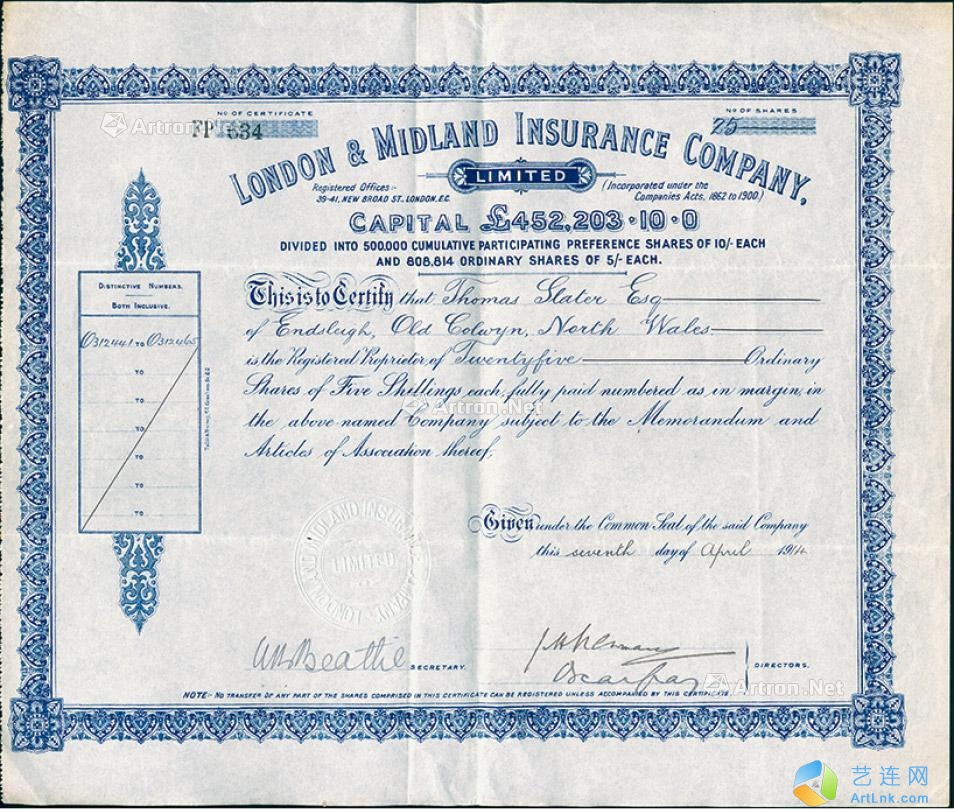 No OF CERTIFICATE
FP 634
No OF SHARES
25
LONDON & MIDLAND INSURANCE COMPANY,
LIMITED
Registered Offices:-
39-41, NEW BROAD ST. LONDON. E.C.
(Incorporated under the
Companies Acts, 1862 to 1900)
CAPITAL £452,203·10·0
DIVIDED INTO 500,000 CUMULATIVE PARTICIPATING PREFERENCE SHARES OF 10/- EACH
AND 808,814 ORDINARY SHARES OF 5/- EACH.
DISTINCTIVE NUMBERS.
BOTH INCLUSIVE.
O312441 TO O312465
TO
TO
TO
TO
TO
TO
This is to Certify that Thomas Slater Esq
of Endsleigh, Old Colwyn, North Wales
is the Registered Proprietor of Twentyfive Ordinary
Shares of Five Shillings each, fully paid numbered as in margin, in
the above named Company subject to the Memorandum and
Articles of Association thereof,
Given under the Common Seal of the said Company
this seventh day of April 1914
LONDON AND MIDLAND INSURANCE COMPANY
LIMITED
Beattie
SECRETARY.
Oscar Gray
DIRECTORS.
NOTE:- NO TRANSFER OF ANY PART OF THE SHARES COMPRISED IN THIS CERTIFICATE CAN BE REGISTERED UNLESS ACCOMPANIED BY THIS CERTIFICATE.
Artron.Net
Artron.Net
Artron.Net
艺连网
ArtLnk.com